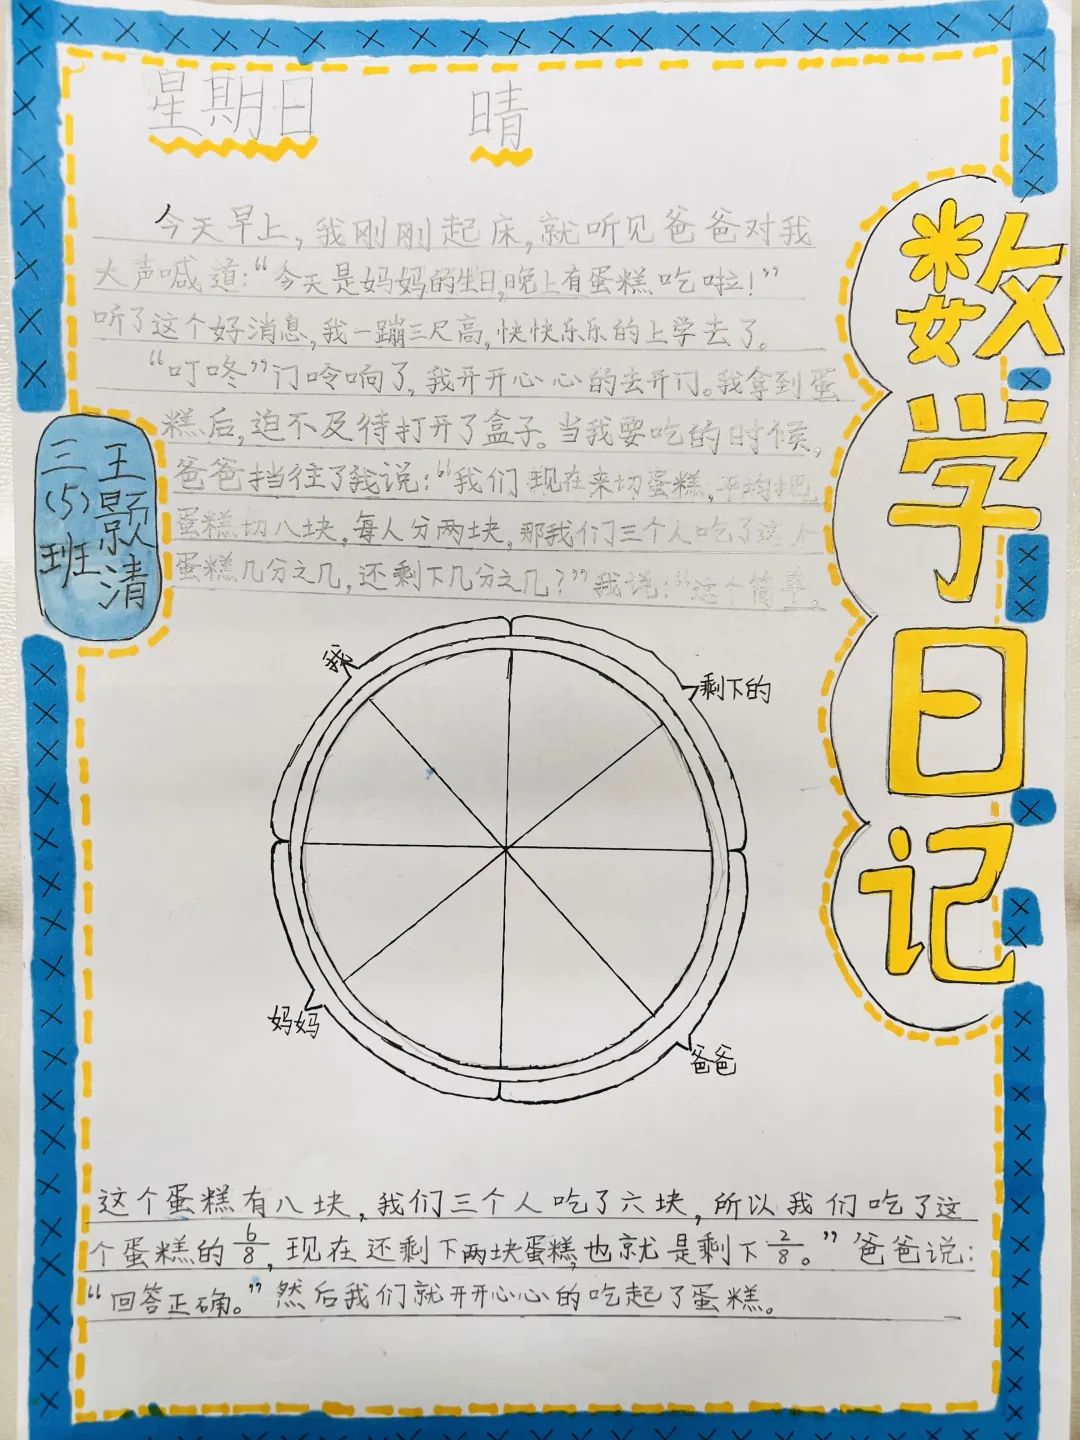 星期日 晴
数学日记
三(5)班
王颢清
今天早上,我刚刚起床,就听见爸爸对我
大声喊道:“今天是妈妈的生日,晚上有蛋糕吃啦!”
听了这个好消息,我一蹦三尺高,快快乐乐的上学去了。
“叮咚”门呤响了,我开开心心的去开门。我拿到蛋
糕后,迫不及待打开了盒子。当我要吃的时候,
爸爸挡住了我说:“我们现在来切蛋糕,平均把
蛋糕切八块,每人分两块,那我们三个人吃了这个
蛋糕几分之几,还剩下几分之几?”我说:“这个简单。
我
剩下的
妈妈
爸爸
这个蛋糕有八块,我们三个人吃了六块,所以我们吃了这
个蛋糕的6/8,现在还剩下两块蛋糕,也就是剩下2/8。”爸爸说:
“回答正确。”然后我们就开开心心的吃起了蛋糕。